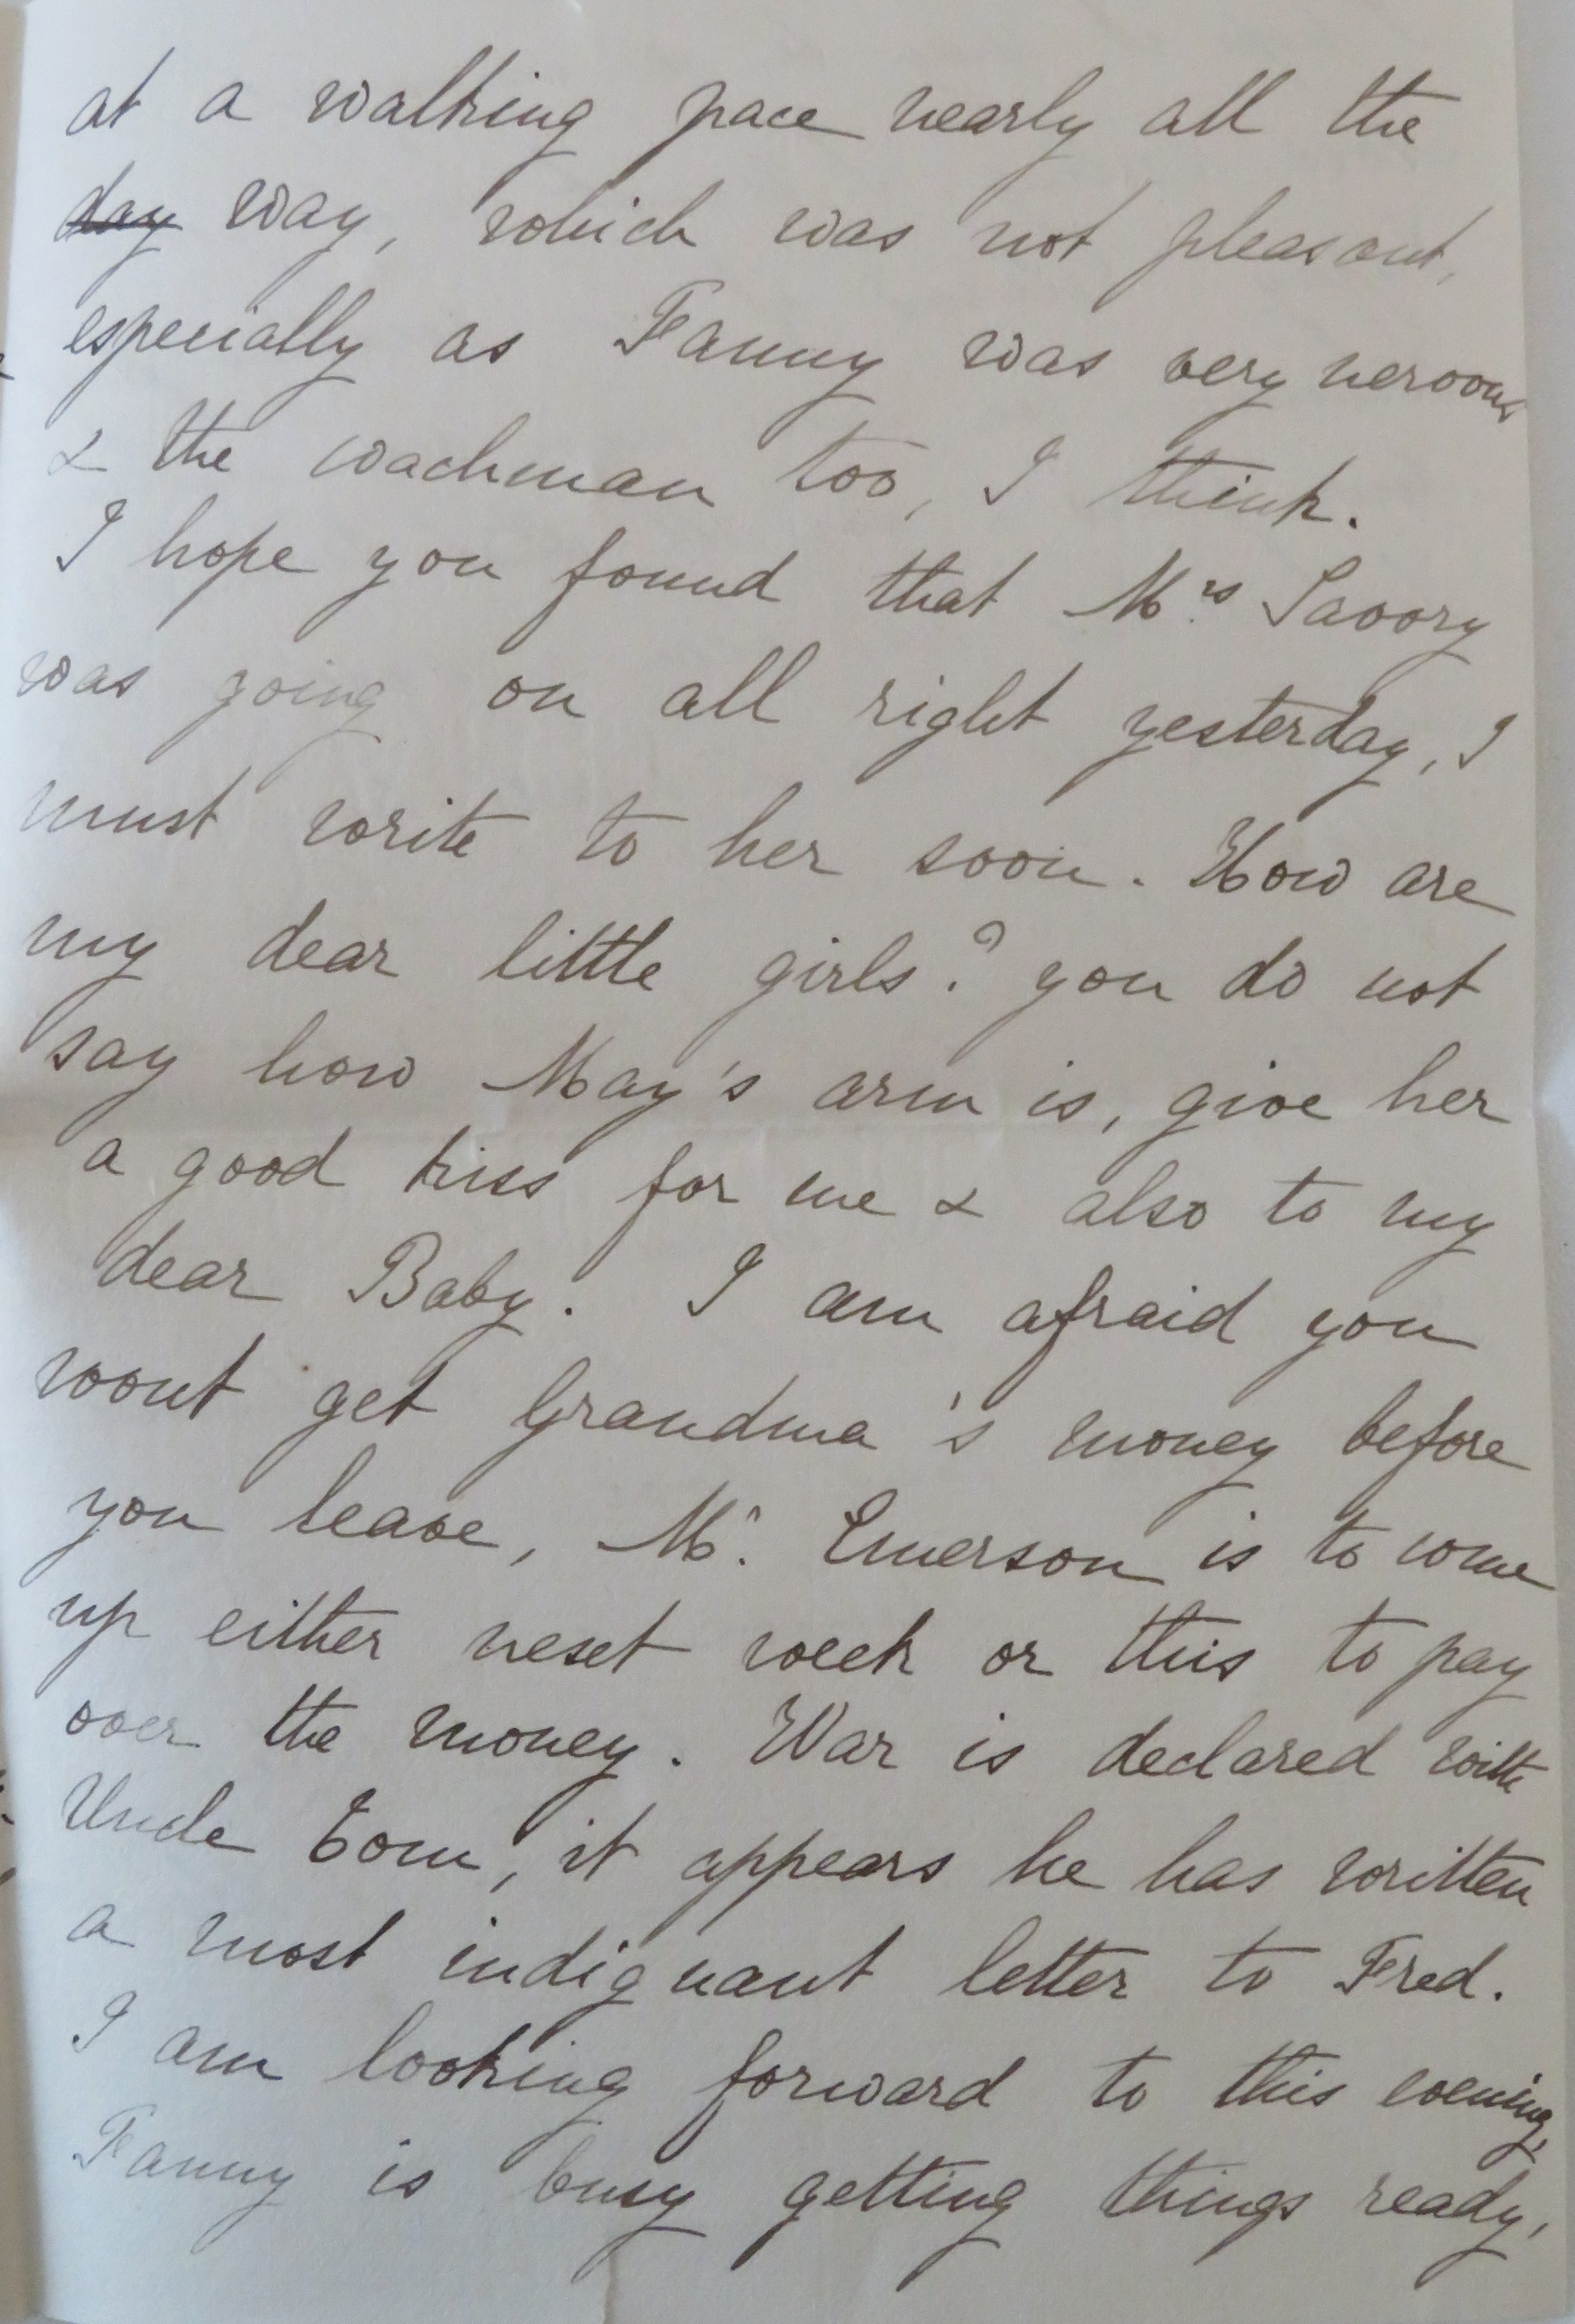 at a walking pace nearly all the
~~day~~ way, which was not pleasant,
especially as Fanny was very nervous
& the coachman too, I think.
I hope you found that Mrs Savory
was going on all right yesterday, I
must write to her soon. How are
my dear little girls? you do not
say how May's arm is, give her
a good kiss for me & also to my
dear Baby. I am afraid you
wont get Grandma's money before
you leave, Mr. Emerson is to come
up either next week or this to pay
over the money. War is declared with
Uncle Tom, it appears he has written
a most indignant letter to Fred.
I am looking forward to this evening,
Fanny is busy getting things ready,